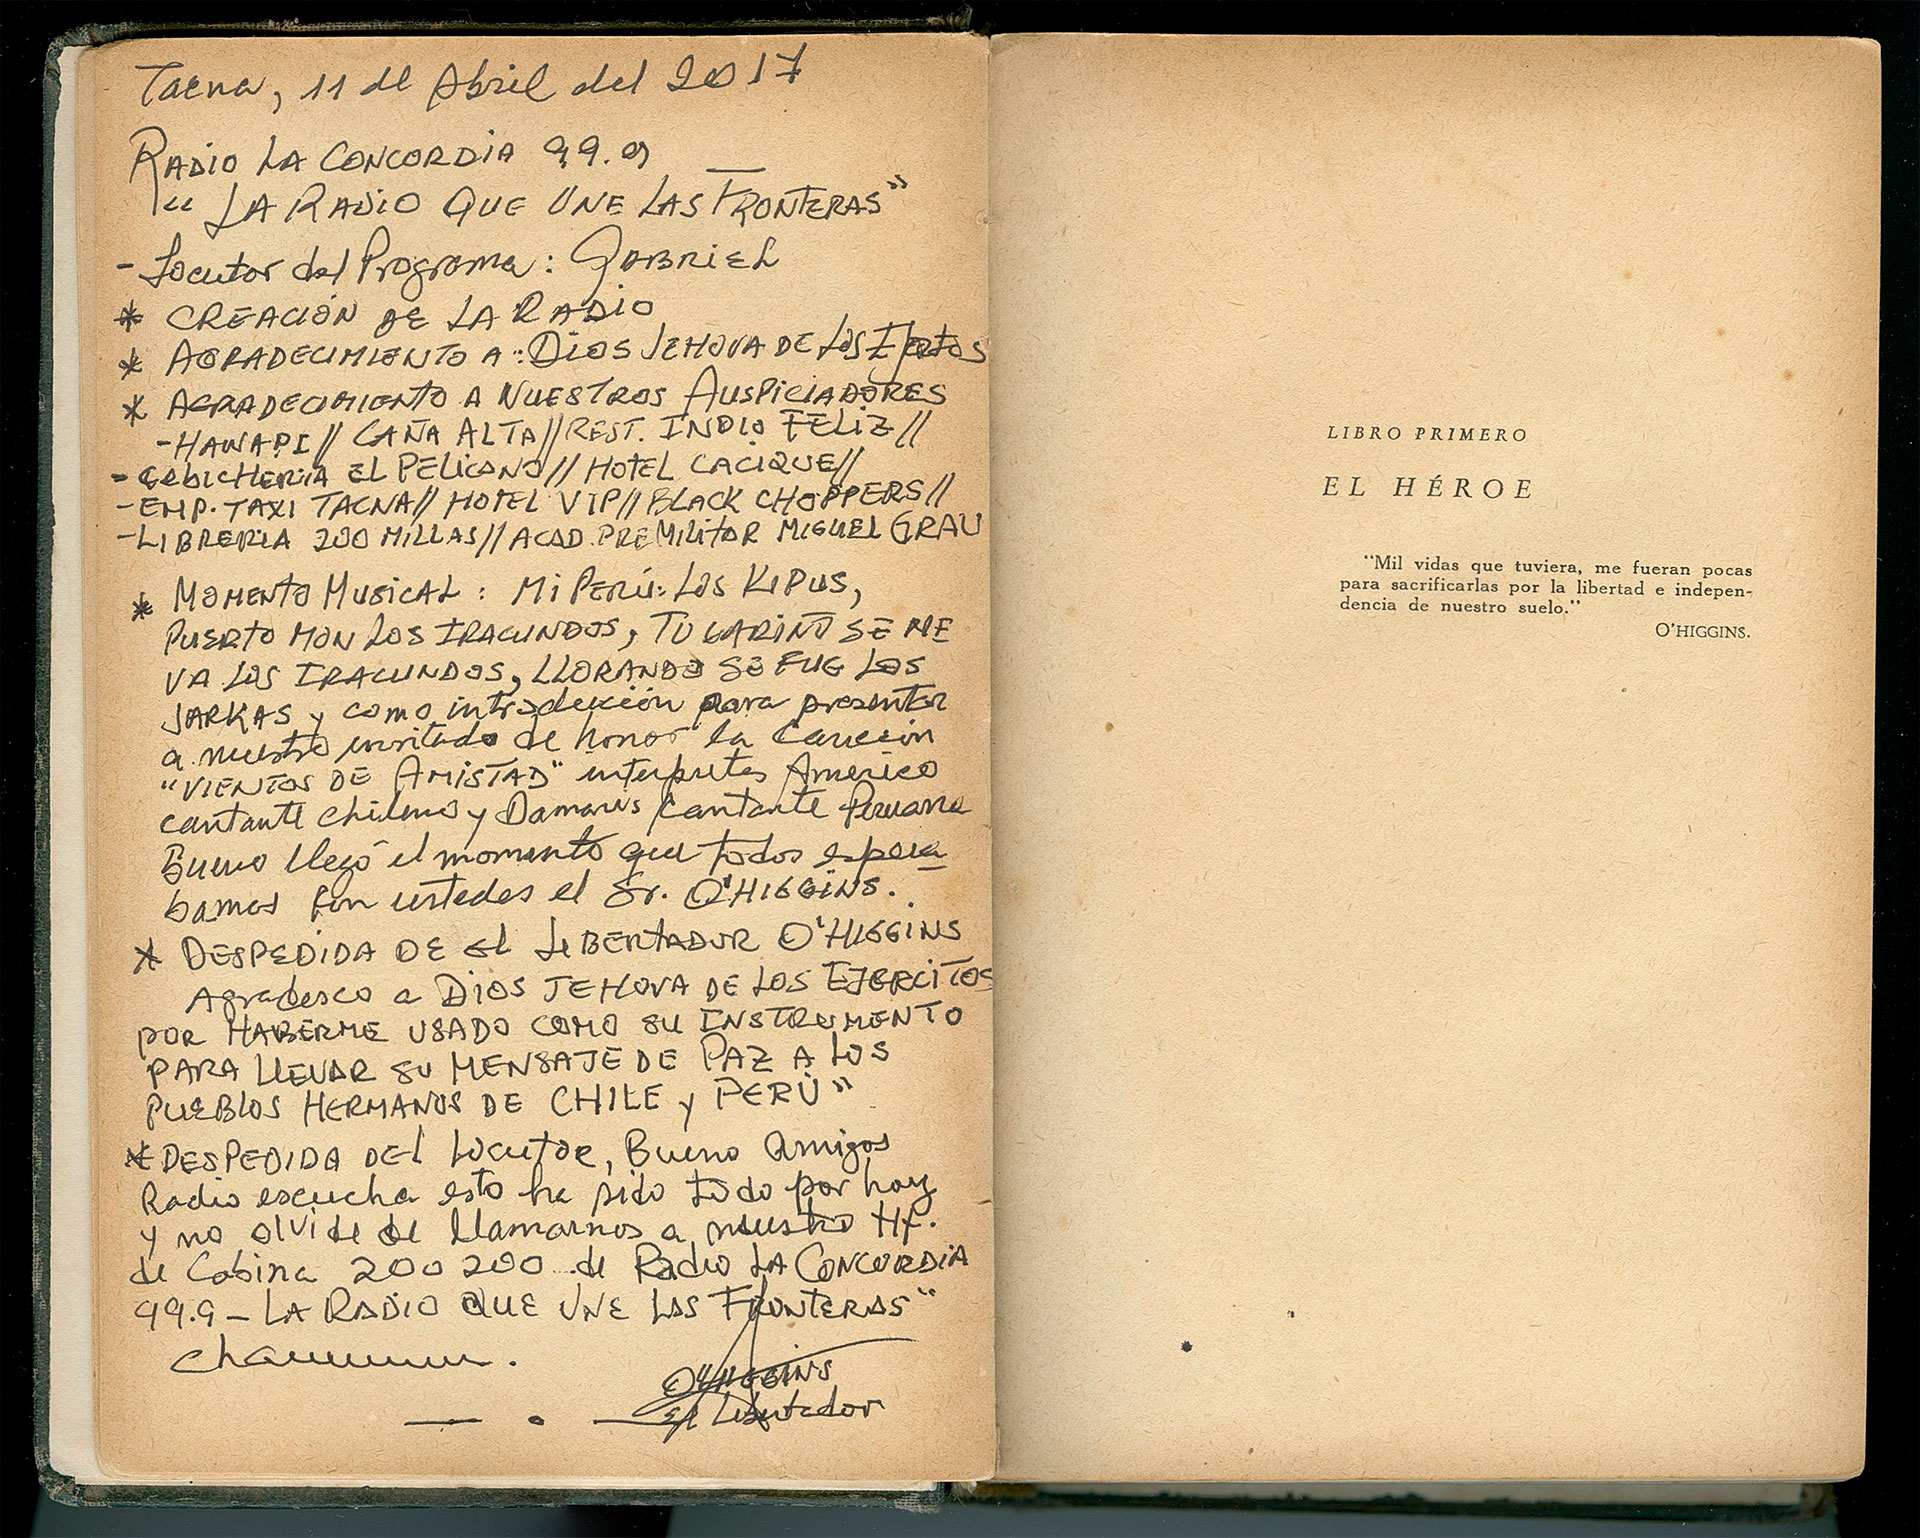 Tacna, 11 de Abril del 2017
RADIO LA CONCORDIA 99.9
"LA RADIO QUE UNE LAS FRONTERAS"
- Locutor del Programa: GABRIEL
* CREACIÓN DE LA RADIO
* AGRADECIMIENTO A: DIOS JEHOVA DE LOS
* AGRADECIMIENTO A NUESTROS AUSPICIADORES
- HAWAPI // CAÑA ALTA // REST. INDIO FELIZ //
- CEBICHERIA EL PELICANO // HOTEL CACIQUE //
- EMP. TAXI TACNA // HOTEL VIP // BLACK CHOPPERS //
- LIBRERIA 200 MILLAS // ACAD. PRE MILITAR MIGUEL GRAU
* MOMENTO MUSICAL: MI PERÚ: LOS KIPUS,
PUERTO MON LOS IRACUNDOS, TU CARIÑO SE ME
VA LOS IRACUNDOS, LLORANDO SE FUE LOS
JARKAS y como introducción para presentar
a nuestro invitado de honor la canción
"VIENTOS DE AMISTAD" interpretes Americo
cantante chileno y Damaris cantante Peruana
Bueno llegó el momento que todos espera
bamos con ustedes el Sr. O'HIGGINS.
* DESPEDIDA DE EL LIBERTADOR O'HIGGINS
Agradesco a DIOS JEHOVA DE LOS EJERCITOS
POR HABERME USADO COMO SU INSTRUMENTO
PARA LLEVAR SU MENSAJE DE PAZ A LOS
PUEBLOS HERMANOS DE CHILE y PERÚ"
* DESPEDIDA DEL Locutor, Bueno Amigos
Radio escucha esto ha sido todo por hoy
y no olvide de llamarnos a nuestro tlf.
de Cabina 200200 de Radio LA CONCORDIA
99.9 - LA RADIO QUE UNE LAS FRONTERAS"
chauuuuuuu.
O'HIGGINS
El Libertador
LIBRO PRIMERO
EL HÉROE
"Mil vidas que tuviera, me fueran pocas
para sacrificarlas por la libertad e indepen-
dencia de nuestro suelo."
O'HIGGINS.